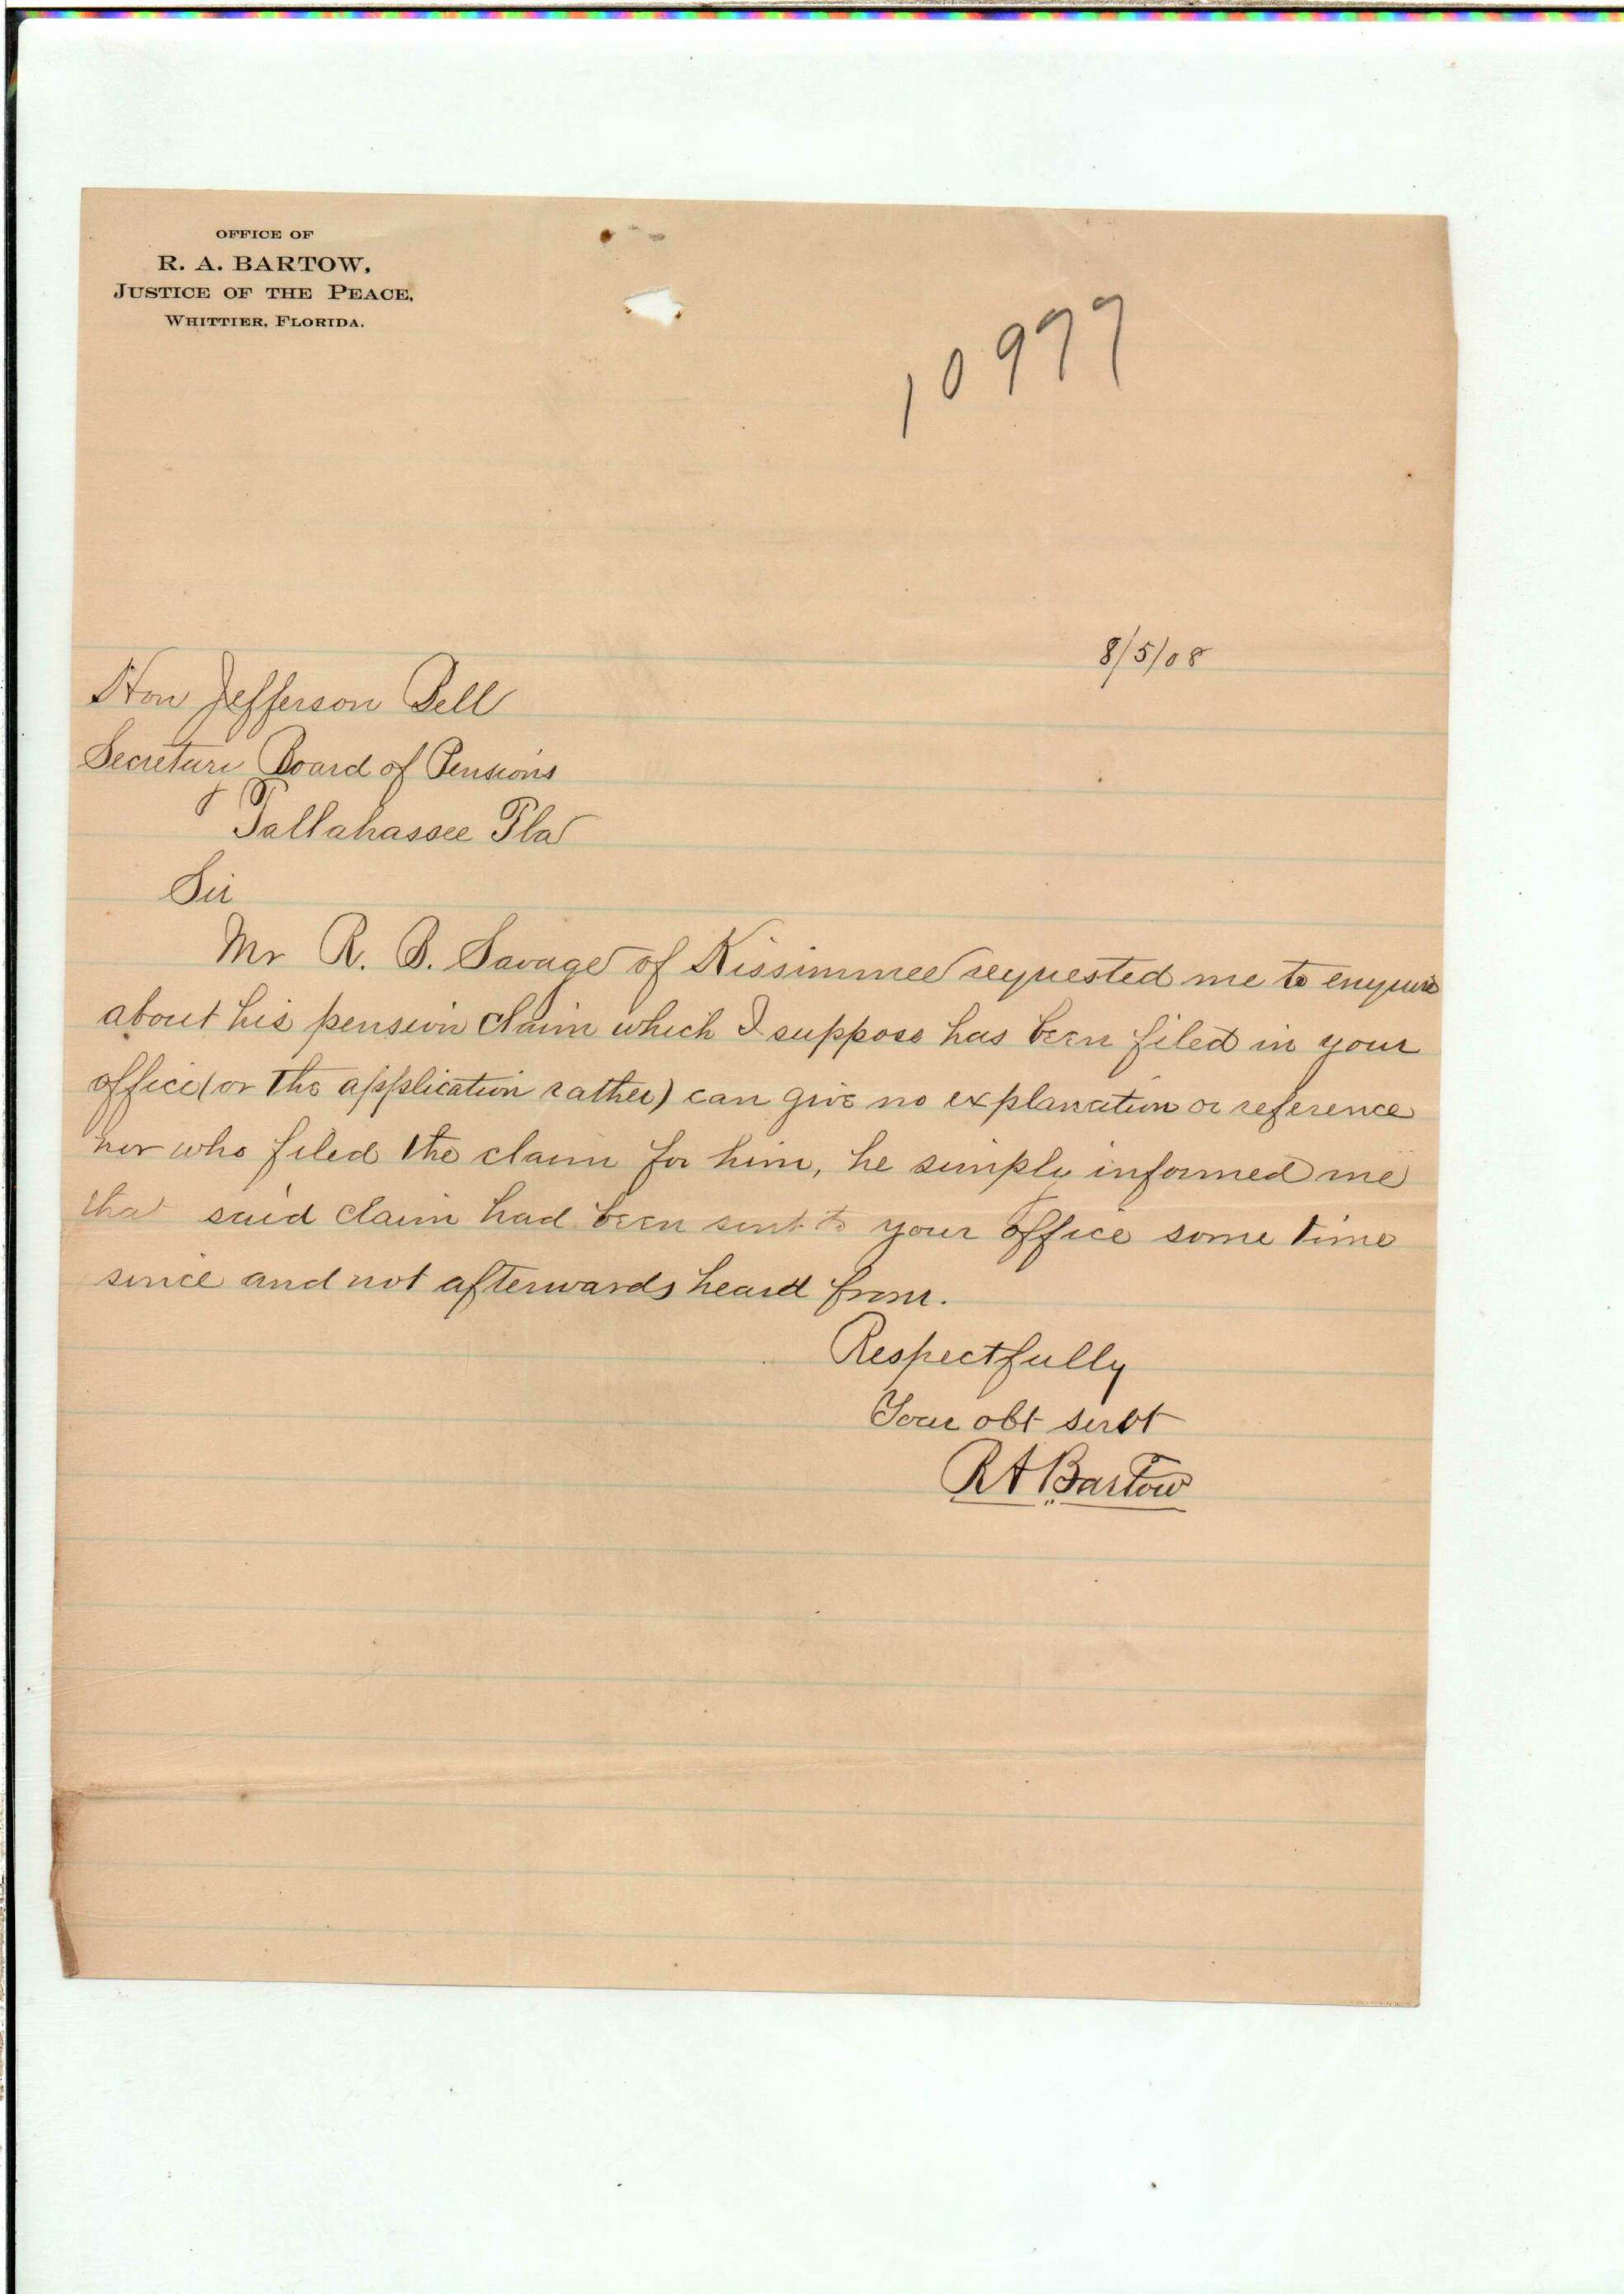 OFFICE OF
R. A. BARTOW,
JUSTICE OF THE PEACE,
WHITTIER, FLORIDA.
10977
8/5/08
Hon Jefferson Bell
Secretary Board of Pensions
Tallahassee Fla
Sir
Mr R. B. Savage of Kissimmee requested me to enquire
about his pension claim which I suppose has been filed in your
office (or the application rather) can give no explanation or reference
nor who filed the claim for him, he simply informed me
that said claim had been sent to your office some time
since and not afterwards heard from.
Respectfully
Your obt servt
R A Bartow